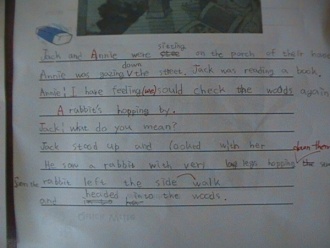 sitting
Jack and Annie were on the porch of their house
down
Annie was gazing the street. Jack was reading a book.
Annie: I have feeling (we) should check the woods again
A rabbit's hopping by.
Jack: what do you mean?
Jack stood up and looked with her
He saw a rabbit with very legs hopping the
rabbit left the side walk
and headed into the woods.